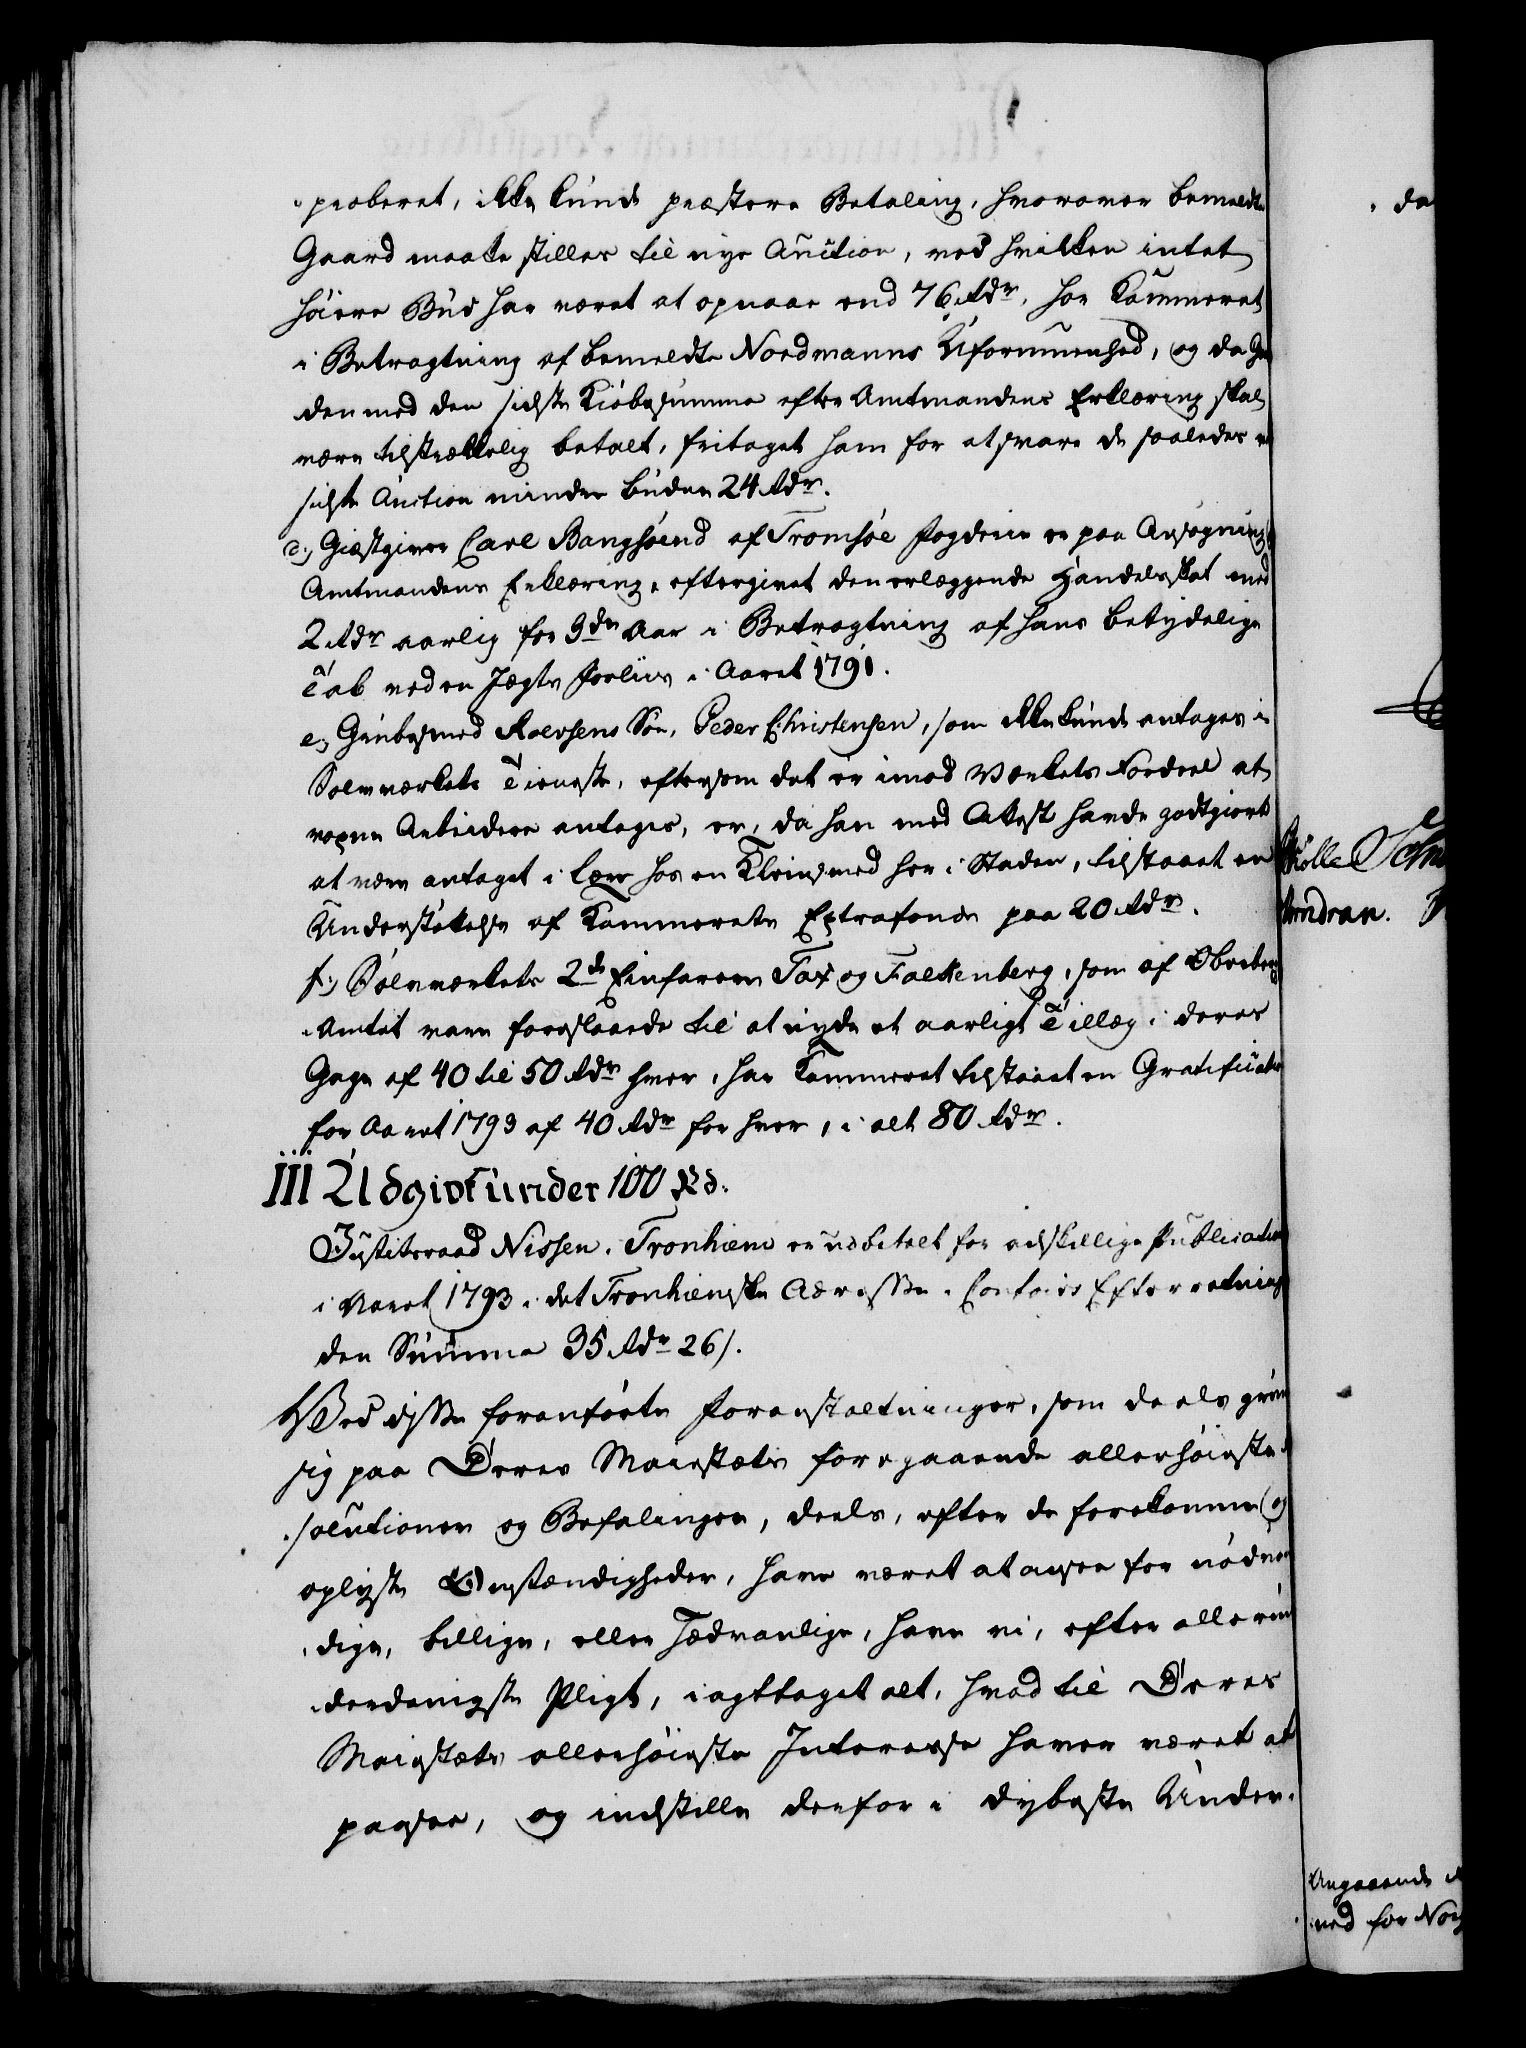 proberet, ikke kunde præstere Betaling, hvorover bemeldte
Gaard maatte stilles til nye Auction, ved hvilken intet
høiere Bud har været at opnaae end 76 Rdr, har Kammeret
i Betragtning af bemeldte Nordmanns Uformuenhed, og da
den med den sidste Kiøbesumma efter Amtmandens Erklæring skal
være tilstrækkelig betalt, fritaget ham for at svare de saaledes
sidste Auction mindre budne 24 Rdr.
Giæstgiver Carl Bangsöund af Tromsöe Fogderie er paa Ansøgning
Amtmandens Erklæring, eftergivet den erlæggende Handelsskat med
2 Rdr aarlig for 3de Aar i Betragtning af hans betydelige
Tab ved en Jægts Forliis i Aaret 1791.
e, Grubesmed Roersens Søn, Peder Christensen, som ikke kunde antages i
Sølvværkets Tieneste, eftersom det er imod Værkets Fordeel at
voxne Arbeidere antages, er, da han med Attest havde godtgiort
at være antaget i Lære hos en Kleinsmed her i Staden, tilstaaet en
Understøttelse af Kammerets Extrafonds paa 20 Rdr.
f, Sølvværkets 2de Einfarere Fax og Falckenberg, som af Oberberg
Amtet vare foreslaaede til at nyde et aarligt Tillæg i deres
Gage af 40 til 50 Rdr hver, har Kammeret tilstaaet en Gratification
for Aaret 1793 af 40 Rdr for hver, i alt 80 Rdr.
III Udgivt under 100 Rd.
Justitsraad Nissen i Tronhiem er udbetalt for adskillige Publicationer
i Aaret 1793 i det Tronhiemske Adresse-Contoirs Efterretninger
den Summa 35 Rdr 26 s.
Ved disse foranførte Foranstaltninger, som deels
sig paa Deres Maiestæts foregaaende allerhøieste
solutioner og Befalinger, deels, efter de forekomne og
oplyste Omstændigheder, have været at ansee for nødven
dige, billige, eller sædvanlige, have vi, efter allerun
derdanigste Pligt, iagttaget alt, hvad til Deres
Maiestæts allerhøieste Interesse haver været at
paasee, og indstille derfor i dybeste Under-
da
Angaaende
ved for